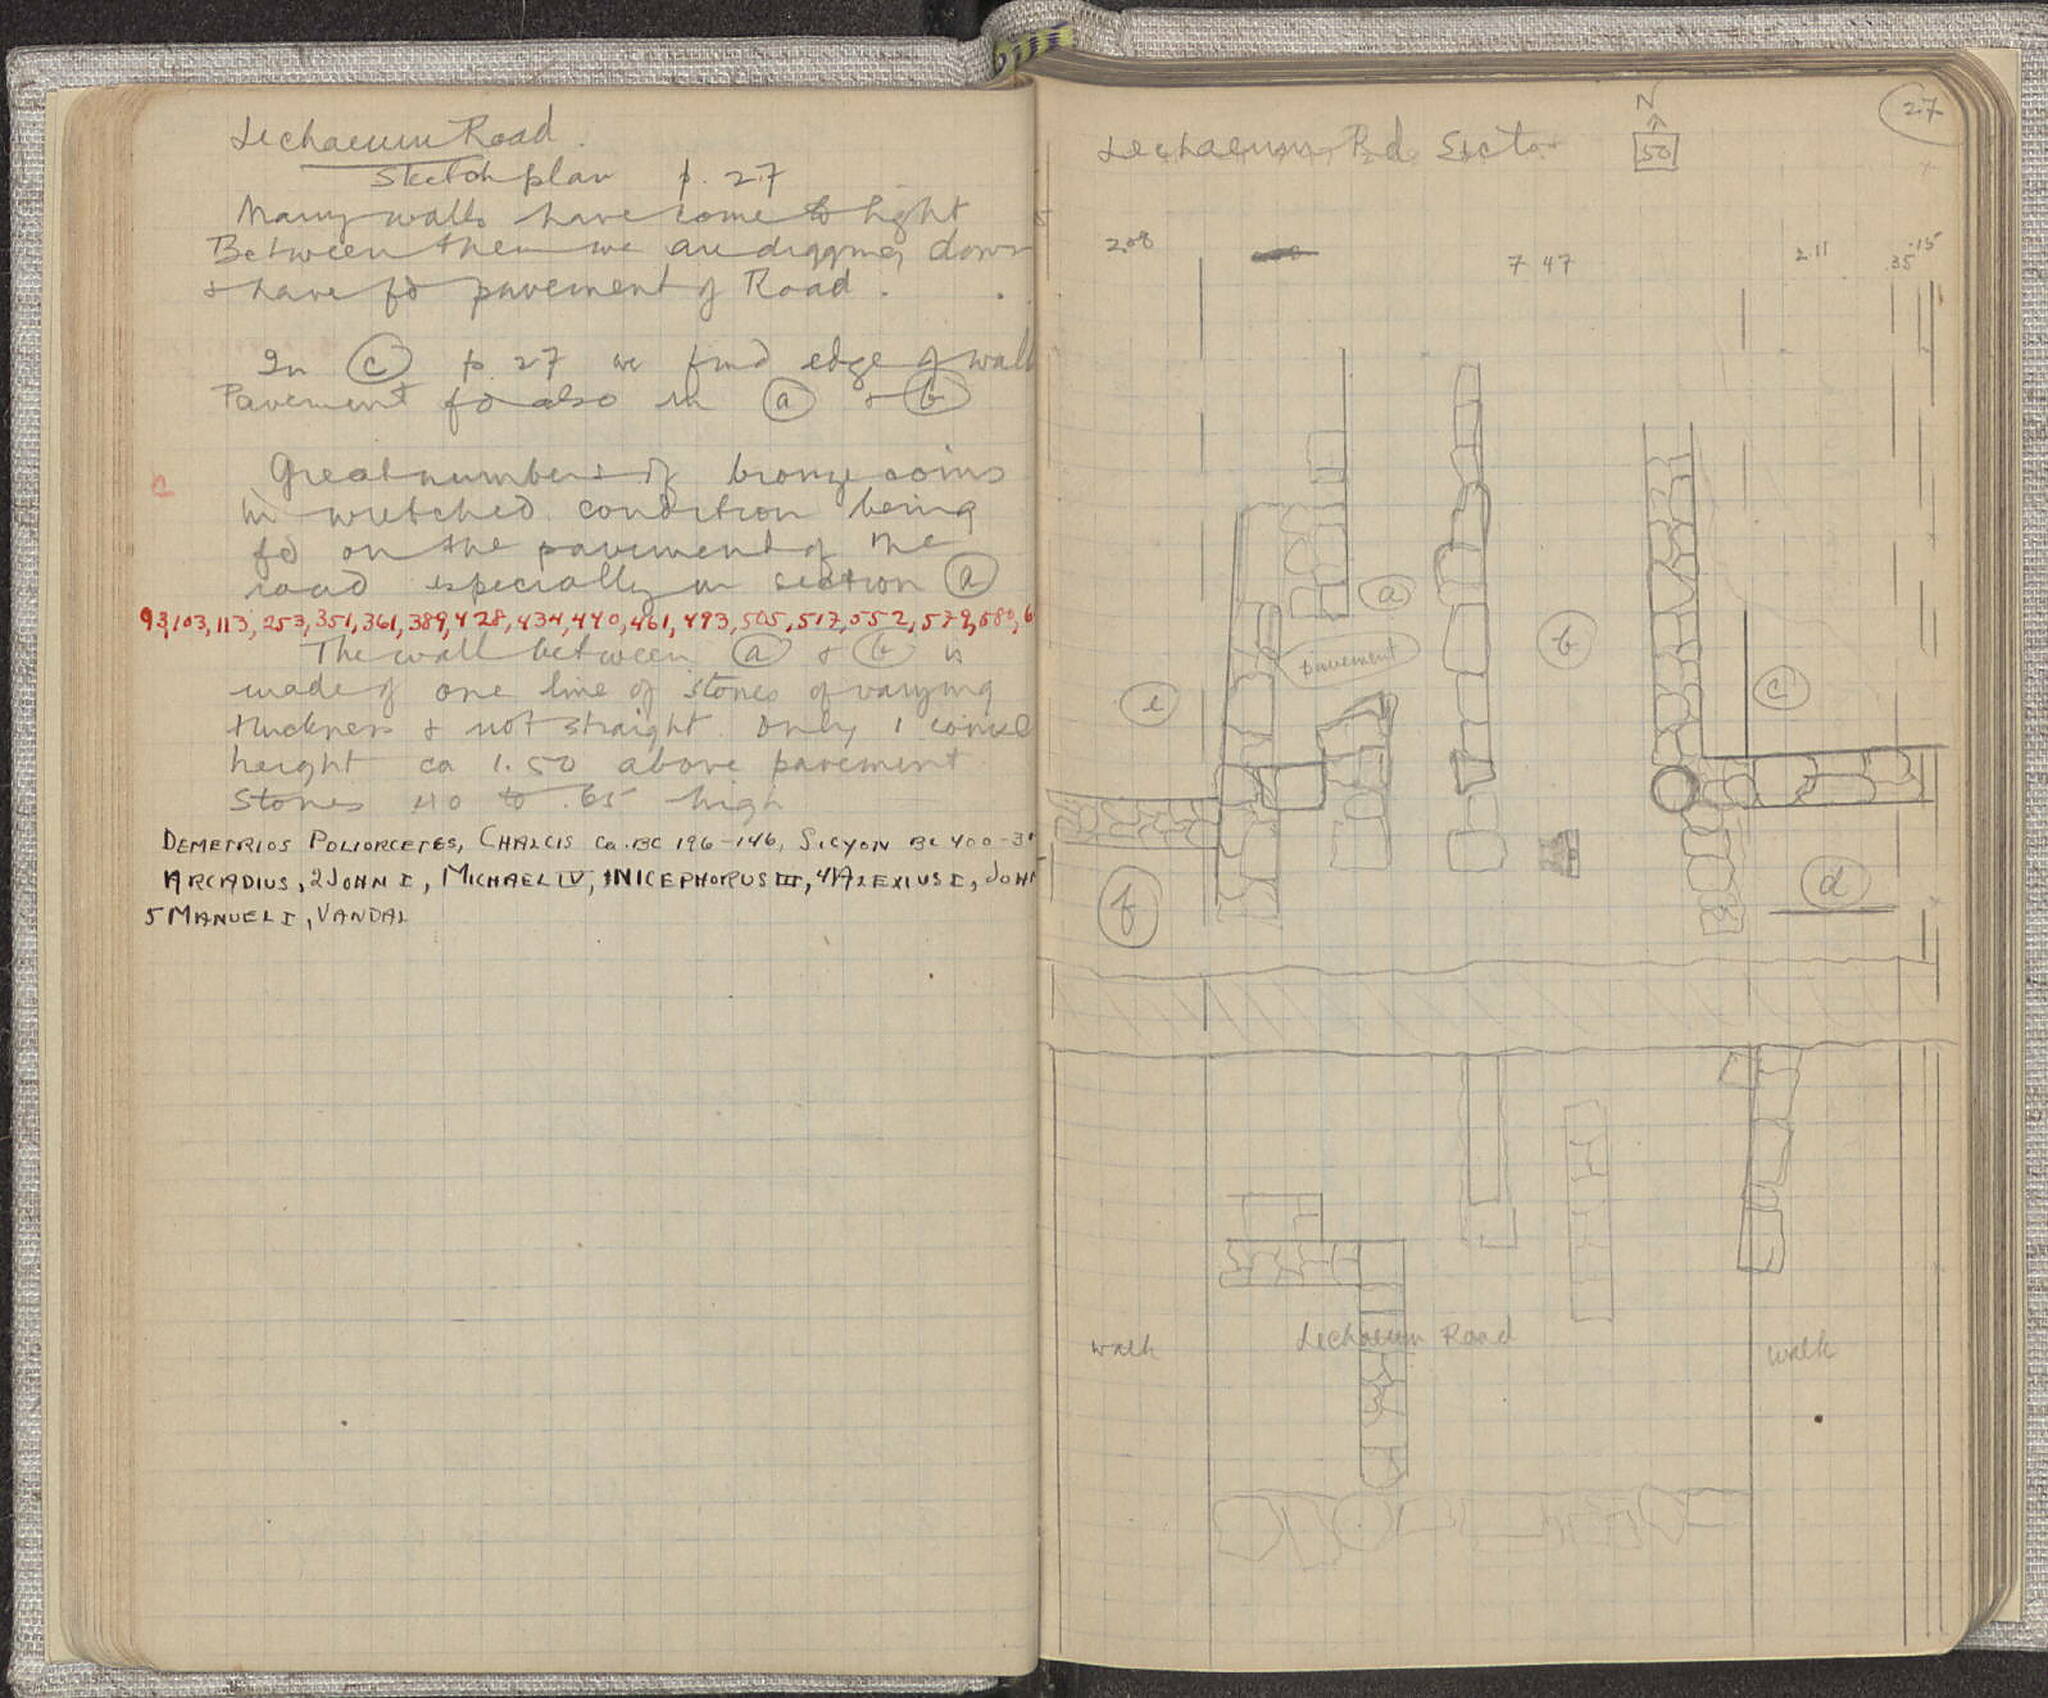 Lechaeum Road.
Sketch plan p. 27
Many walls have come to light
Between them we are digging down
& have fd pavement of Road.
In (c) p. 27 we find edge of wall
Pavement fd also in (a) & (b)
Great numbers of bronze coins
in wretched condition being
fd on the pavement of the
road especially in section (a)
93, 103, 113, 253, 351, 361, 389, 428, 434, 440, 461, 493, 505, 517, 552, 579, 580, 6
The wall between (a) & (b) is
made of one line of stones of varying
thickness & not straight. Only 1 course
height ca 1.50 above pavement
Stones .40 to .65 high
DEMETRIOS POLIORCETES, CHALCIS ca. BC 196-146, SICYON BC 400-3
ARCADIUS, 2 JOHN I, MICHAEL IV, NICEPHORUS III, 4 ALEXIUS I, JOHN
5 MANUEL I, VANDAL
27
N
50
Lechaeum Rd Sector
2.08
7 47
2.11
.35
.15
a
b
pavement
e
c
d
f
walk
Lechaeum Road
walk